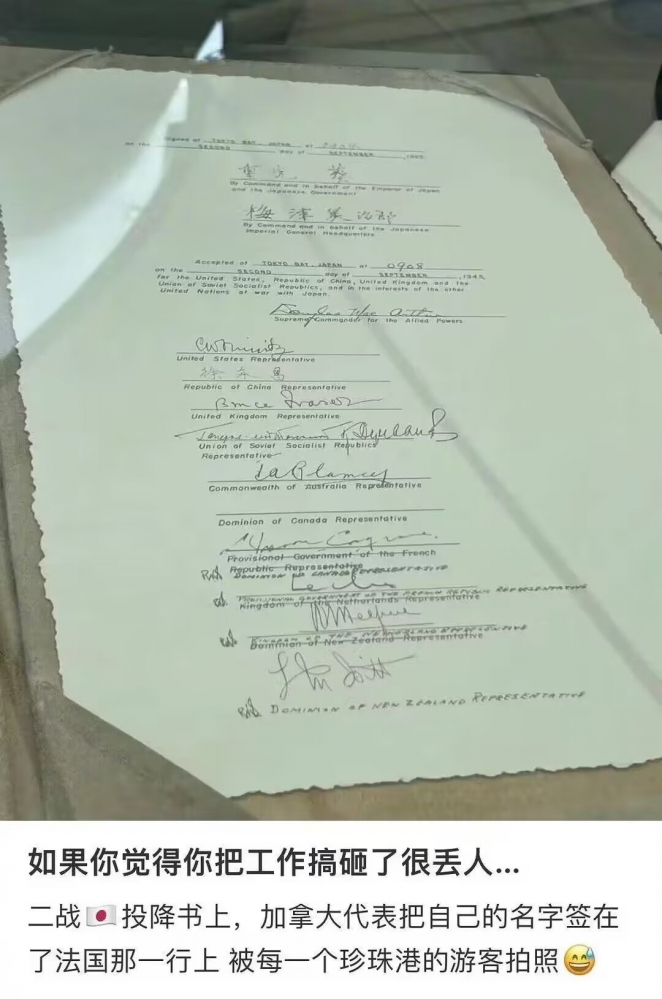 Signed at TOKYO BAY, JAPAN at 0904
on the SECOND day of SEPTEMBER, 1945.
重光 葵
By Command and in behalf of the Emperor of Japan
and the Japanese Government
梅津美治郎
By Command and in behalf of the Japanese
Imperial General Headquarters
Accepted at TOKYO BAY, JAPAN at 0908
on the SECOND day of SEPTEMBER, 1945,
for the United States, Republic of China, United Kingdom and the
Union of Soviet Socialist Republics, and in the interests of the other
United Nations at war with Japan.
Douglas MacArthur
Supreme Commander for the Allied Powers
CW Nimitz
United States Representative
徐永昌
Republic of China Representative
Bruce Fraser
United Kingdom Representative
Union of Soviet Socialist Republics
Representative
Commonwealth of Australia Representative
Dominion of Canada Representative
Provisional Government of the French
Republic Representative
DOMINION OF CANADA REPRESENTATIVE
PROVISIONAL GOVERNMENT OF THE FRENCH REPUBLIC REPRESENTATIVE
Kingdom of the Netherlands Representative
KINGDOM OF THE NETHERLANDS REPRESENTATIVE
Dominion of New Zealand Representative
DOMINION OF NEW ZEALAND REPRESENTATIVE
如果你觉得你把工作搞砸了很丢人...
二战🇯🇵投降书上，加拿大代表把自己的名字签在
了法国那一行上 被每一个珍珠港的游客拍照😅